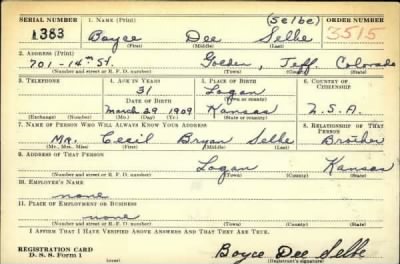 SERIAL NUMBER 1. NAME (Print) (Selbe) ORDER NUMBER
1383 Boyce Dee Selbe 3515
(First) (Middle) (Last)
2. ADDRESS (Print)
701-14th St. Golden, Jeff. Colorado
(Number and street or R. F. D. number) (Town) (County) (State)
3. TELEPHONE 4. AGE IN YEARS 5. PLACE OF BIRTH 6. COUNTRY OF CITIZENSHIP
31 Logan
DATE OF BIRTH (Town or county)
March 29 1909 Kansas U.S.A.
(Exchange) (Number) (Mo.) (Day) (Yr.) (State or country)
7. NAME OF PERSON WHO WILL ALWAYS KNOW YOUR ADDRESS 8. RELATIONSHIP OF THAT PERSON
Mr. Cecil Bryan Selbe Brother
(Mr., Mrs., Miss) (First) (Middle) (Last)
9. ADDRESS OF THAT PERSON
Logan Kansas
(Number and street or R. F. D. number) (Town) (County) (State)
10. EMPLOYER'S NAME
none
11. PLACE OF EMPLOYMENT OR BUSINESS
none
(Number and street or R. F. D. number) (Town) (County) (State)
I AFFIRM THAT I HAVE VERIFIED ABOVE ANSWERS AND THAT THEY ARE TRUE.
REGISTRATION CARD
D. S. S. Form 1 Boyce Dee Selbe
(Registrant's signature)